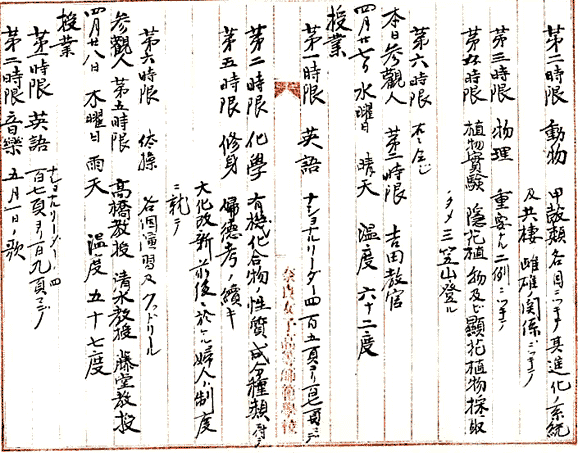 第二時限 動物 甲殻類各目ニツキテ其進化ノ系統
及共棲 雌雄ノ関係ニツキテ
第三時限 物理 重要ナル二例ニツキテ
第五時限 植物実験 隠花植物及ビ顕花植物採取
ノタメ三笠山登ル
第六時限
本日参観人 第三時限 吉田教官
四月廿七日 水曜日 晴天 温度 六十二度
授業
第一時限 英語 ナショナルリーダー四 百五頁ヨリ百七頁マデ
奈良女子高等師範學校
第二時限 化学 有機化合物ノ性質成分種類ニ付キテ
第五時限 修身 婦徳考ノ續キ
大化改新前後ニ於ケル婦人ノ制度
ニ就テ
第六時限 体操 各個演習及クワドリール
参観人 第五時限 高橋教授 清水教授 藤堂教授
四月廿八日 木曜日 雨天 温度 五十七度
授業
第一時限 英語 ナショナルリーダー四
百七頁ヨリ百九頁マデ
第二時限 音樂 五月一日ノ歌